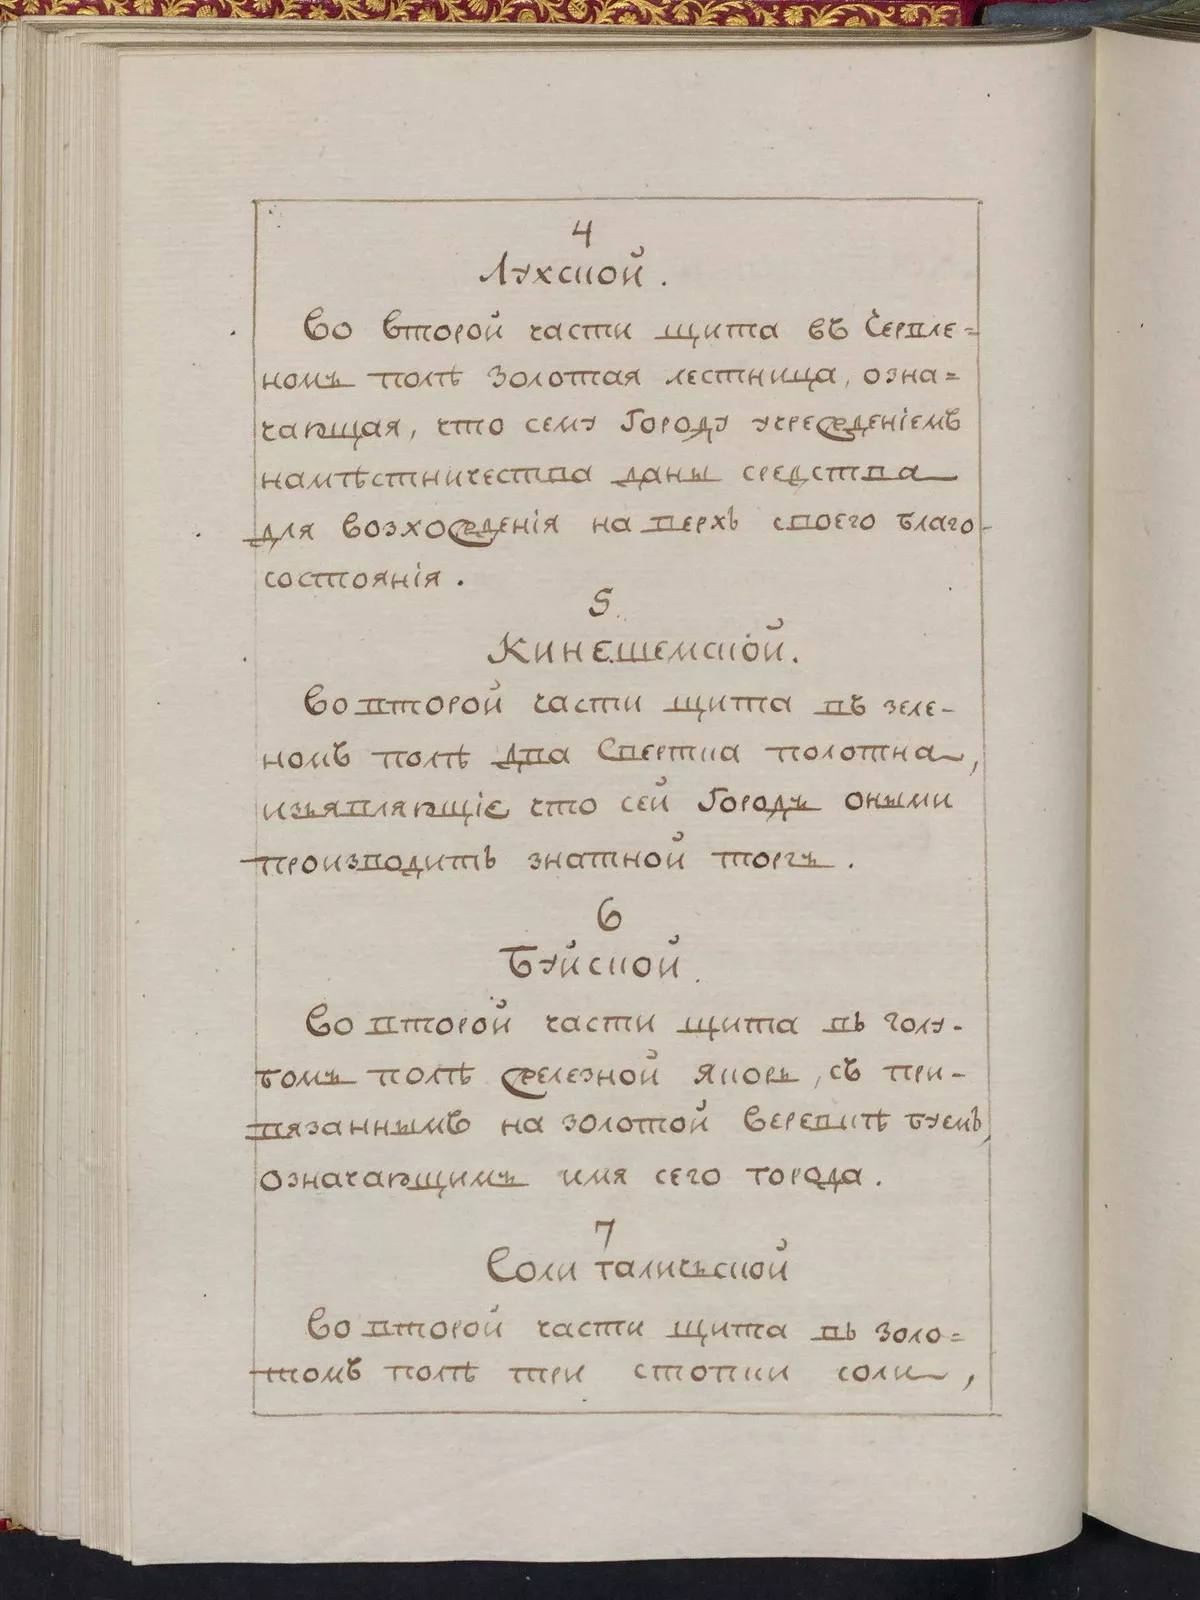 4
Лухской.
Во второй части щита въ Черпле=
номъ полѣ Золотая лестница, озна=
чающая, что сему Городу учрежденіемъ
намѣстничества даны средства
для возхожденія на верхъ своего благо-
состоянія.
5.
Кинешемской.
Во второй части щита въ зеле-
номъ полѣ два Свертка полотна,
изъявляющіе что сей Городъ оными
производитъ знатной торгъ.
6
Буйской.
Во второй части щита въ голу-
бомъ полѣ железной якорь, съ при-
вязаннымъ на золотой веревкѣ буемъ,
означающимъ имя сего города.
7
Соли галичьской
Во второй части щита въ золо=
томъ полѣ три стопки соли,